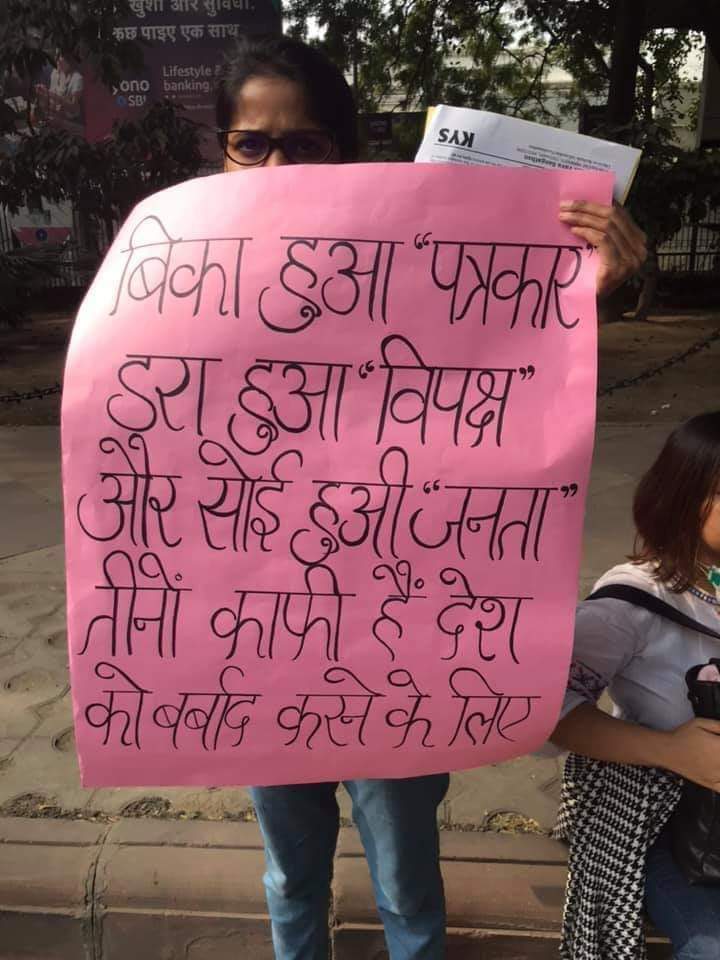 खुशी और सुविधा.
कछ पाइए एक साथ
Lifestyle &
banking,
SBI
KYS
बिका हुआ “पत्रकार”
डरा हुआ “विपक्ष”
और सोई हुओ “जनता”
तीनों काफी हैं देश
को बर्बाद करने के लिए